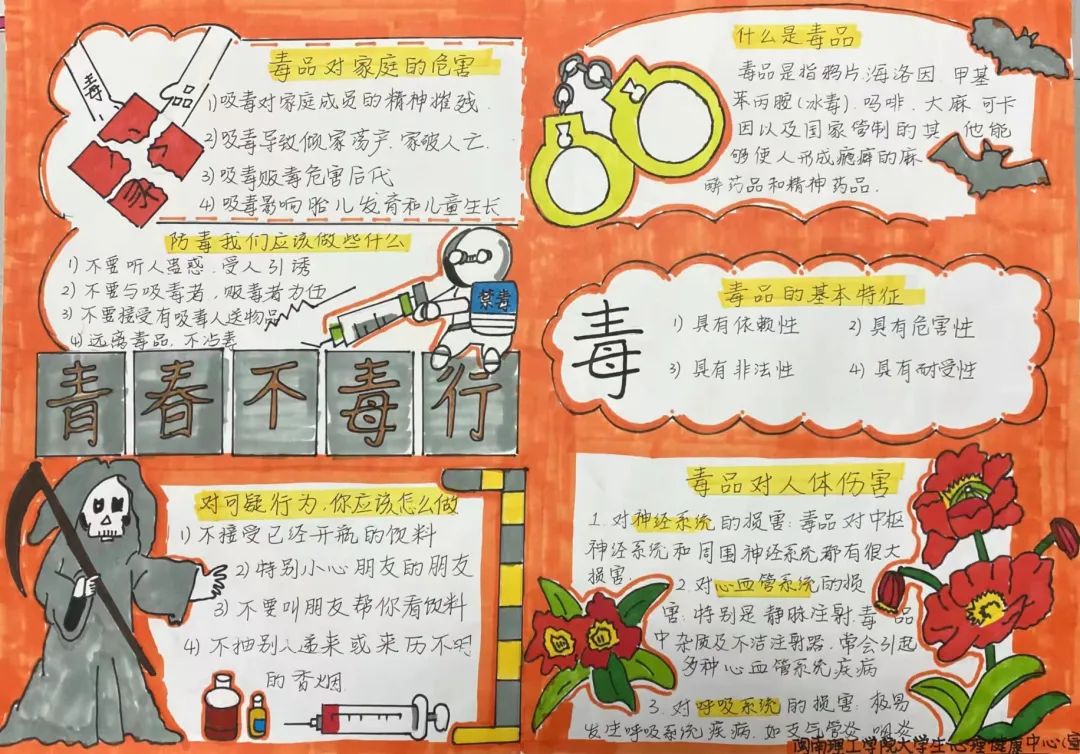 毒
品
家
毒品对家庭的危害
1)吸毒对家庭成员的精神摧残.
2)吸毒导致倾家荡产.家破人亡.
3)吸毒贩毒危害后代
4)吸毒影响胎儿发育和儿童生长
防毒我们应该做些什么
1)不要听人蛊惑.受人引诱
2)不要与吸毒者,贩毒者为伍
3)不要接受有吸毒人送物品
4)远离毒品,不沾毒
禁毒
青春不毒行
对可疑行为,你应该怎么做
1)不接受已经开瓶的饮料
2)特别小心朋友的朋友
3)不要叫朋友帮你看饮料
4)不抽别人递来或来历不明
的香烟.
什么是毒品
毒品是指鸦片.海洛因.甲基
苯丙胺(冰毒).吗啡.大麻.可卡
因以及国家管制的其他能
够使人形成瘾癖的麻
醉药品和精神药品.
毒品的基本特征
毒
1)具有依赖性 2)具有危害性
3)具有非法性 4)具有耐受性
毒品对人体伤害
1.对神经系统的损害:毒品对中枢
神经系统和周围神经系统都有很大
损害.
2.对心血管系统的损
害:特别是静脉注射.毒品
中杂质及不洁注射器.常会引起
多种心血管系统疾病
3.对呼吸系统的损害:极易
发生呼吸系统疾病.如支气管炎.咽炎
闽南理工学院大学生心理健康中心(宣